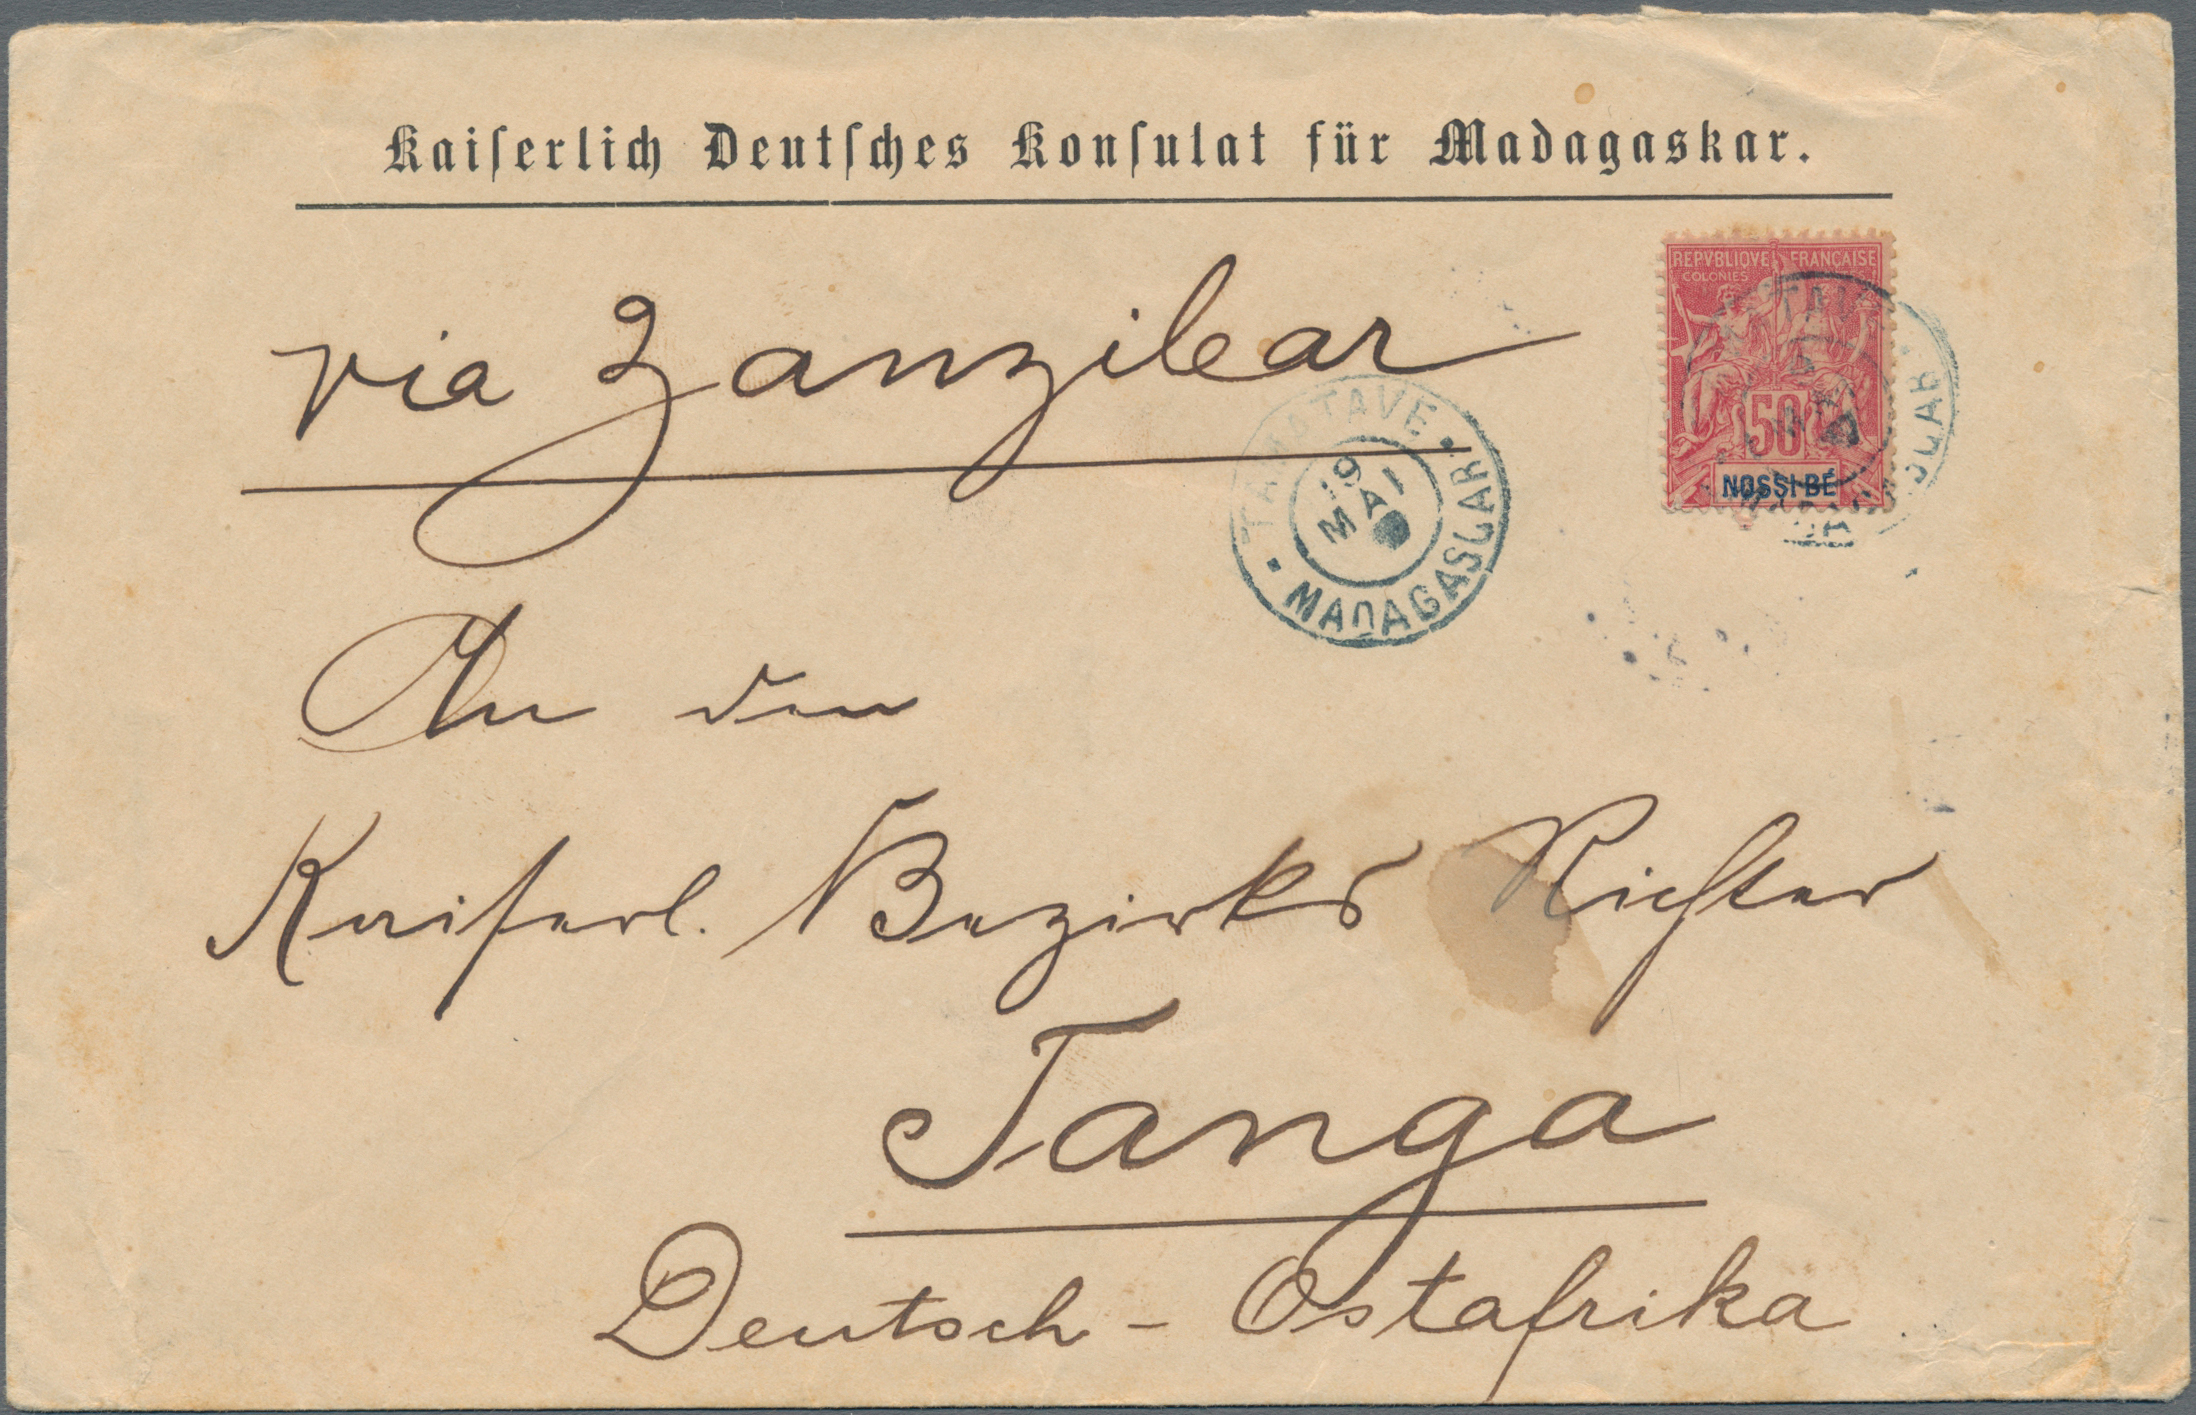 Kaiſerlich Deutſches Konſulat für Madagaskar.
REPVBLIQVE FRANÇAISE
COLONIES
50
NOSSI-BÉ
via Zanzibar
TAMATAVE
19
MAI
MADAGASCAR
An den
Kaiserl. Bezirks Richter
Tanga
Deutsch-Ostafrika